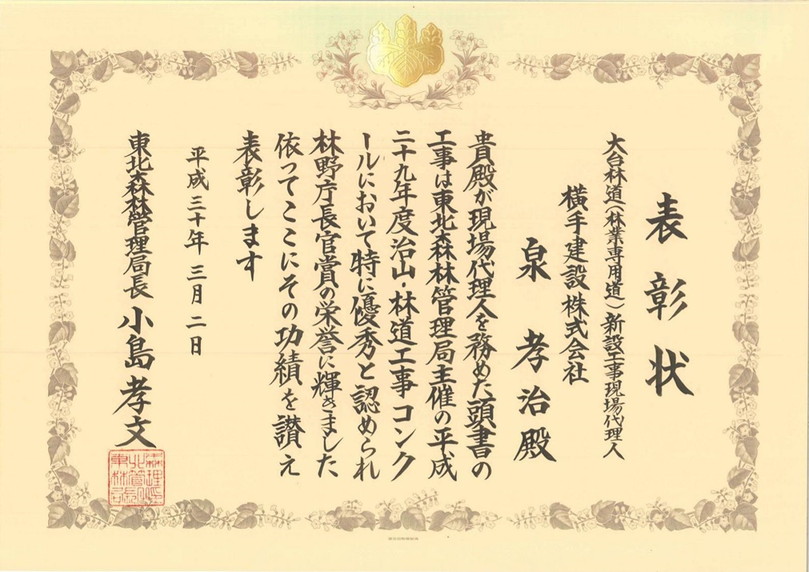 表彰状
大台林道（林業専用道）新設工事現場代理人
横手建設株式会社
泉孝治殿
貴殿が現場代理人を務めた頭書の
工事は東北森林管理局主催の平成
二十九年度治山・林道工事コンク
ールにおいて特に優秀と認められ
林野庁長官賞の栄誉に輝きました
依ってここにその功績を讃え
表彰します
平成三十年三月二日
東北森林管理局長 小島孝文